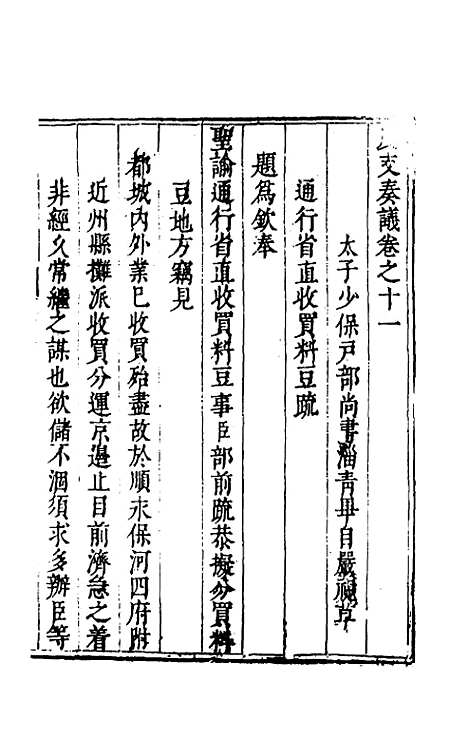 支奏議卷之十一
太子少保戸部尚書淄青畢自嚴視草
通行省直收買料豆疏
題爲欽奉
聖諭通行省直收買料豆事臣部前疏恭擬分買料
豆地方竊見
都城内外業已收買殆盡故於順永保河四府附
近州縣攤派收買分運京邊止目前濟急之着
非經久常繼之謀也欲儲不涸須求多辦臣等